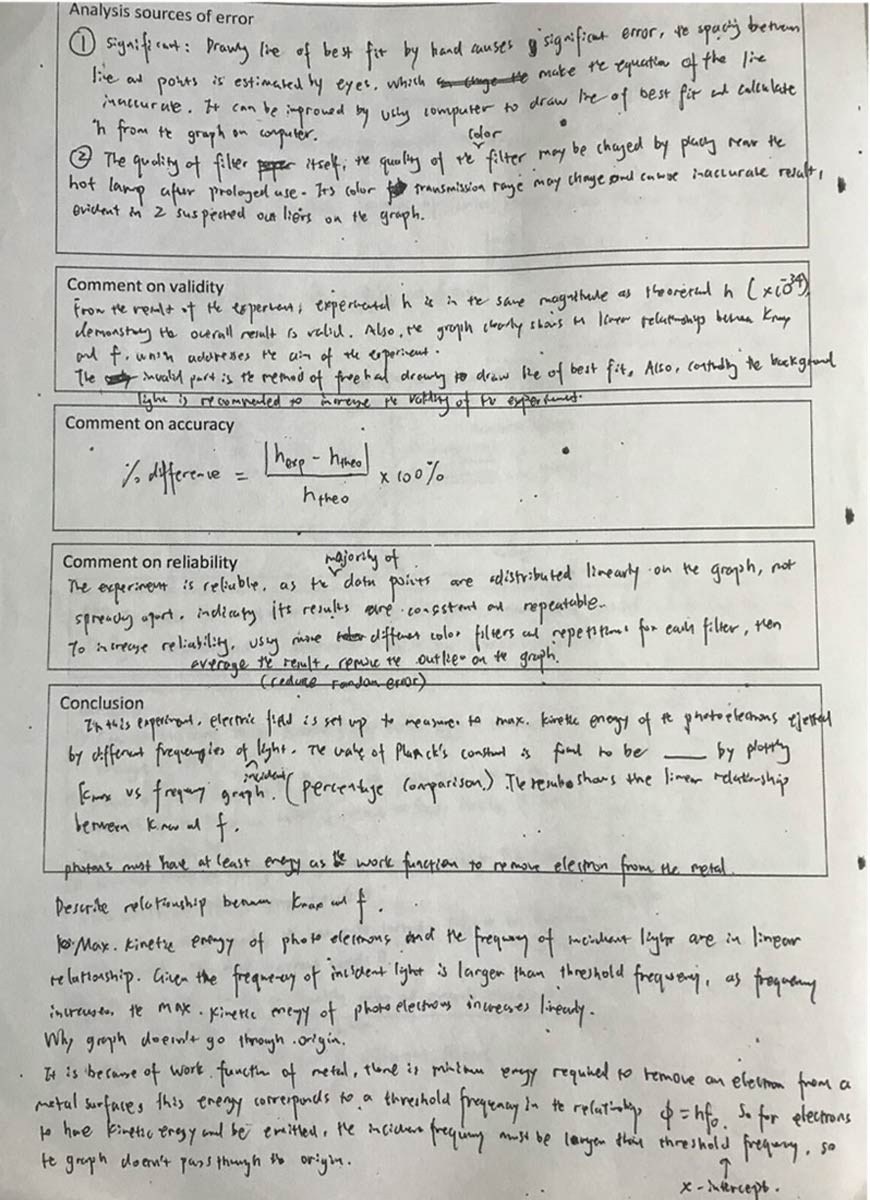 Analysis sources of error
① Significant: Drawing line of best fit by hand causes significant error, the spacing between
line and points is estimated by eyes, which make the equation of the line
inaccurate. It can be improved by using computer to draw line of best fit and calculate
h from the graph on computer.
② The quality of filter itself, the quality of the color filter may be changed by placing near the
hot lamp after prolonged use. Its color transmission range may change and cause inaccurate results,
evident in 2 suspected outliers on the graph.
Comment on validity
From the result of the experiment, experimental h is in the same magnitude as theoretical h (×10⁻³⁴),
demonstrating the overall result is valid. Also, the graph clearly shows the linear relationship between Kmax
and f, which addresses the aim of the experiment.
The invalid part is the method of freehand drawing to draw line of best fit. Also, controlling the background
light is recommended to increase the validity of the experiment.
Comment on accuracy
% difference = |hexp - htheo| / htheo × 100%
Comment on reliability
The experiment is reliable, as the majority of data points are distributed linearly on the graph, not
spreading apart, indicating its results are consistent and repeatable.
To increase reliability, using more different color filters and repetitions for each filter, then
average the result, remove the outlier on the graph.
(reduce random error)
Conclusion
In this experiment, electric field is set up to measure to max. kinetic energy of the photoelectrons ejected
by different frequencies of incident light. The value of Planck's constant is find to be ____ by plotting
Kmax vs frequency graph. (percentage comparison.) The results shows the linear relationship
between Kmax and f.
photons must have at least energy as the work function to remove electron from the metal.
Describe relationship between Kmax and f.
Max. kinetic energy of photoelectrons and the frequency of incident light are in linear
relationship. Given the frequency of incident light is larger than threshold frequency, as frequency
increases the max. kinetic energy of photoelectrons increases linearly.
Why graph doesn't go through origin.
It is because of work function of metal, there is minimum energy required to remove an electron from a
metal surface, this energy corresponds to a threshold frequency in the relationship ϕ = hf₀. So for electrons
to have kinetic energy and be emitted, the incident frequency must be larger than threshold frequency, so
the graph doesn't pass through the origin.
x-intercept.